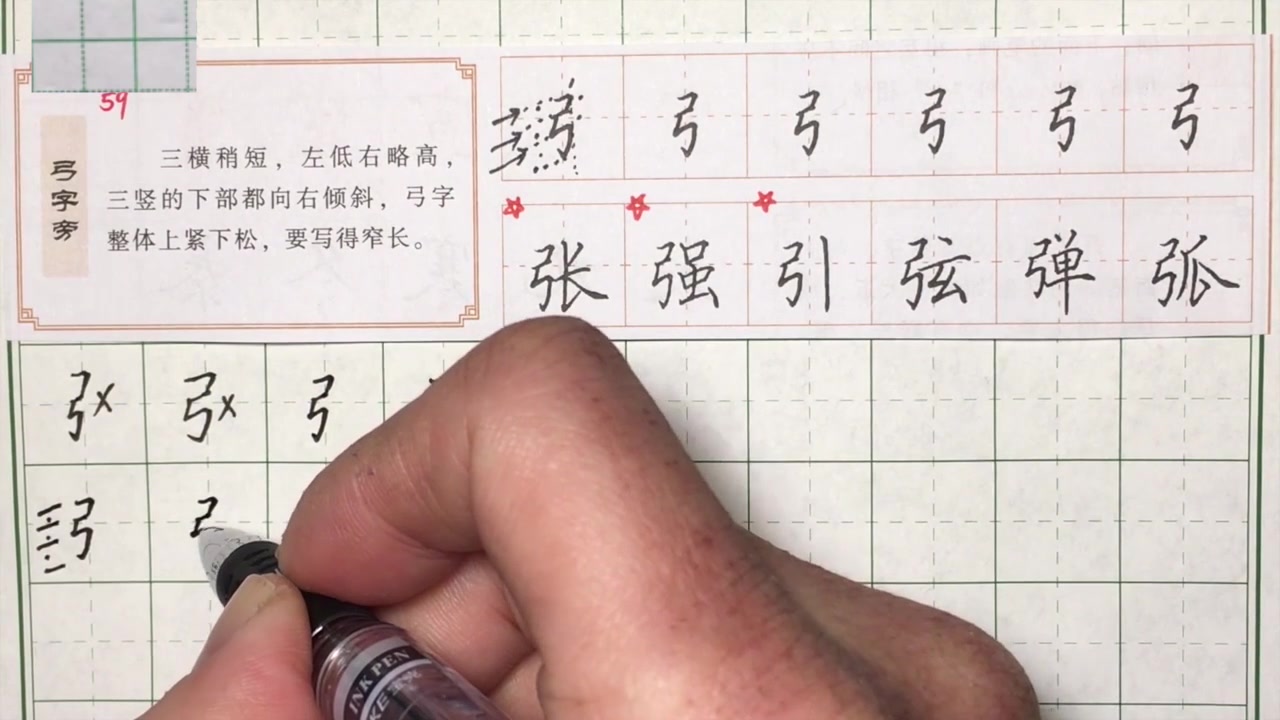 59
弓字旁
三横稍短，左低右略高，
三竖的下部都向右倾斜，弓字
整体上紧下松，要写得窄长。
弓 弓 弓 弓 弓 弓
张 强 引 弦 弹 弧
弓× 弓× 弓
弓
INK PEN